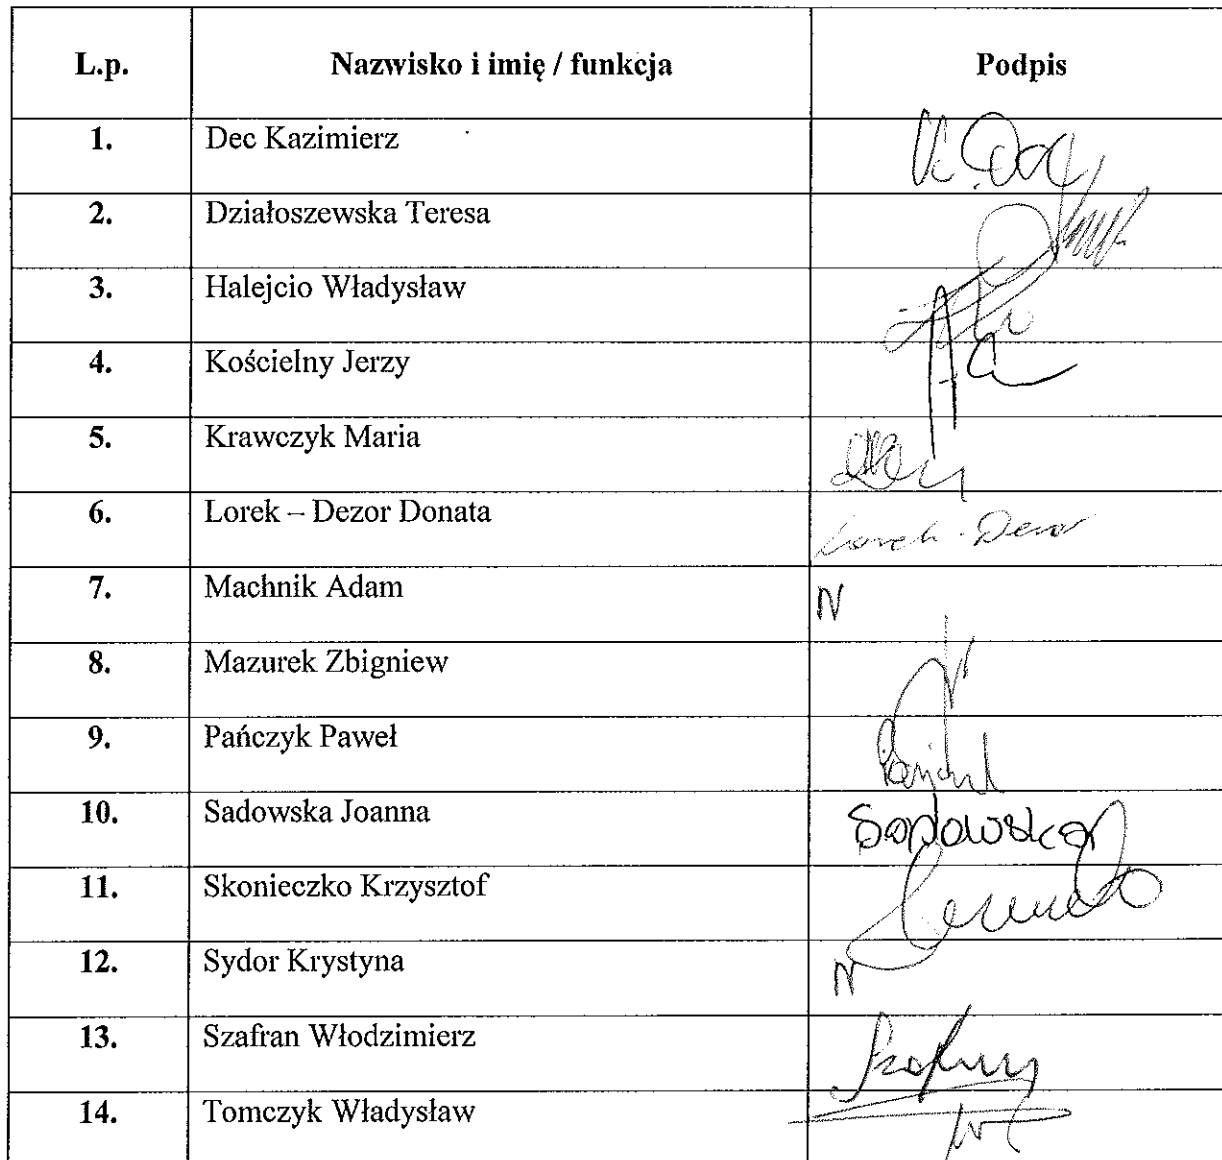 L.p. Nazwisko i imię / funkcja Podpis
1. Dec Kazimierz K. Dec
2. Działoszewska Teresa
3. Halejcio Władysław
4. Kościelny Jerzy
5. Krawczyk Maria
6. Lorek – Dezor Donata Lorek - Dezor
7. Machnik Adam N
8. Mazurek Zbigniew
9. Pańczyk Paweł
10. Sadowska Joanna Sadowska
11. Skonieczko Krzysztof
12. Sydor Krystyna N
13. Szafran Włodzimierz
14. Tomczyk Władysław